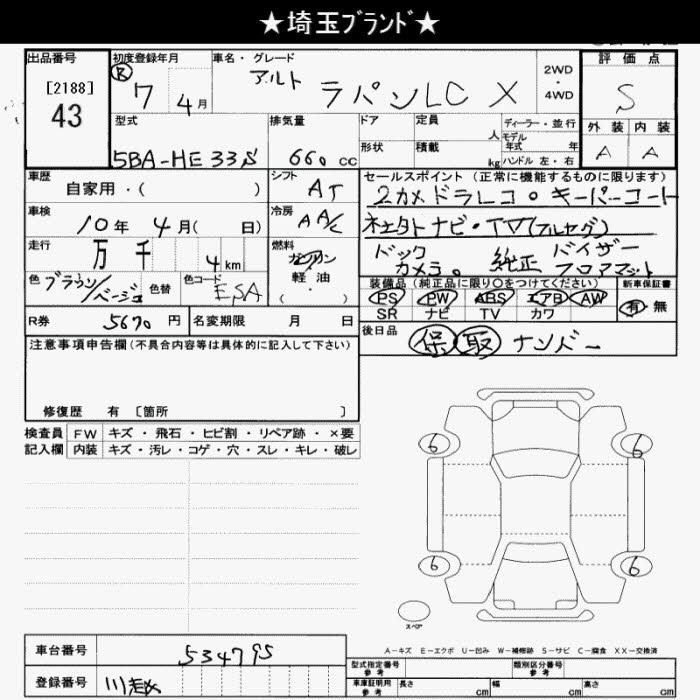 ★埼玉ﾌﾞﾗﾝﾄﾞ★
出品番号 初度登録年月 車名・グレード 評価点
[2188] 43 R 7年 4月 アルト ラパンLC X 2WD・4WD S
型式 排気量 ドア 定員 人 ディーラー・並行 外装 内装
5BA-HE33S 660cc 形状 積載 kg モデル年式 年 ハンドル 左・右 A A
車歴 シフト セールスポイント (正常に機能するものに限ります)
自家用・( ) AT 2カメドラレコ。キーパーコート
車検 冷房 ネエタトナビ・TV(フルセグ)
10年 4月( 日) AA/C
走行 万 千 4km 燃料 ガソリン 軽油 ・ ( ) ドック バイザー
カメラ。 純正 フロアマット
色 ブラウン/ベージュ 色替 色コード ESA
装備品 (純正品に限り○をつけてください) 新車保証書
PS PW ABS エアB AW 有 無
SR ナビ TV カワ
R券 5670円 名変期限 月 日 後日品 保 取 ナンバー
注意事項申告欄(不具合内容等は具体的に記入して下さい)
修復歴 有 [箇所 ]
検査員 FW キズ・飛石・ヒビ割・リペア跡・×要
記入欄 内装 キズ・汚レ・コゲ・穴・スレ・キレ・破レ
6 6
6 6
スペア
A−キズ E−エクボ U−凹み W−補修跡 S−サビ C−腐食 XX−交換済
車台番号 534795 型式指定番号 参考 類別区分番号 参考
登録番号 車庫証明用 参考 長さ cm 幅 cm 高さ cm